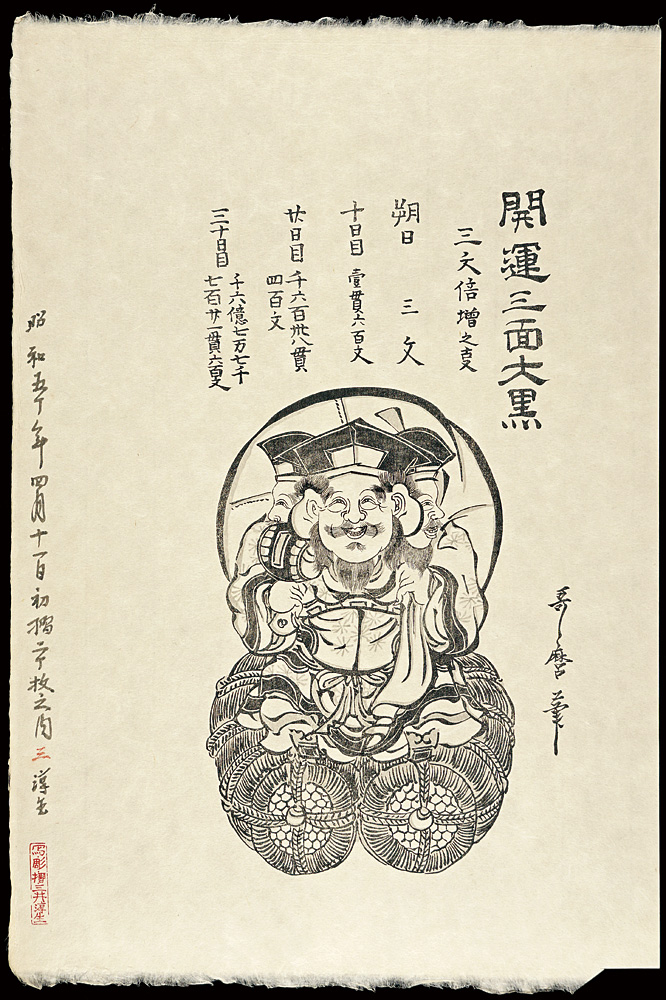 開運三面大黒
三文倍増之叓
朔日 三文
十日目 壹貫六百文
廿日目 千六百卅八貫
四百文
三十日目 千六億七万七千
七百廿一貫六百文
哥麿筆
昭和五十年四月十一日初摺二十枚之内 三 淳生
写彫摺三井淳生